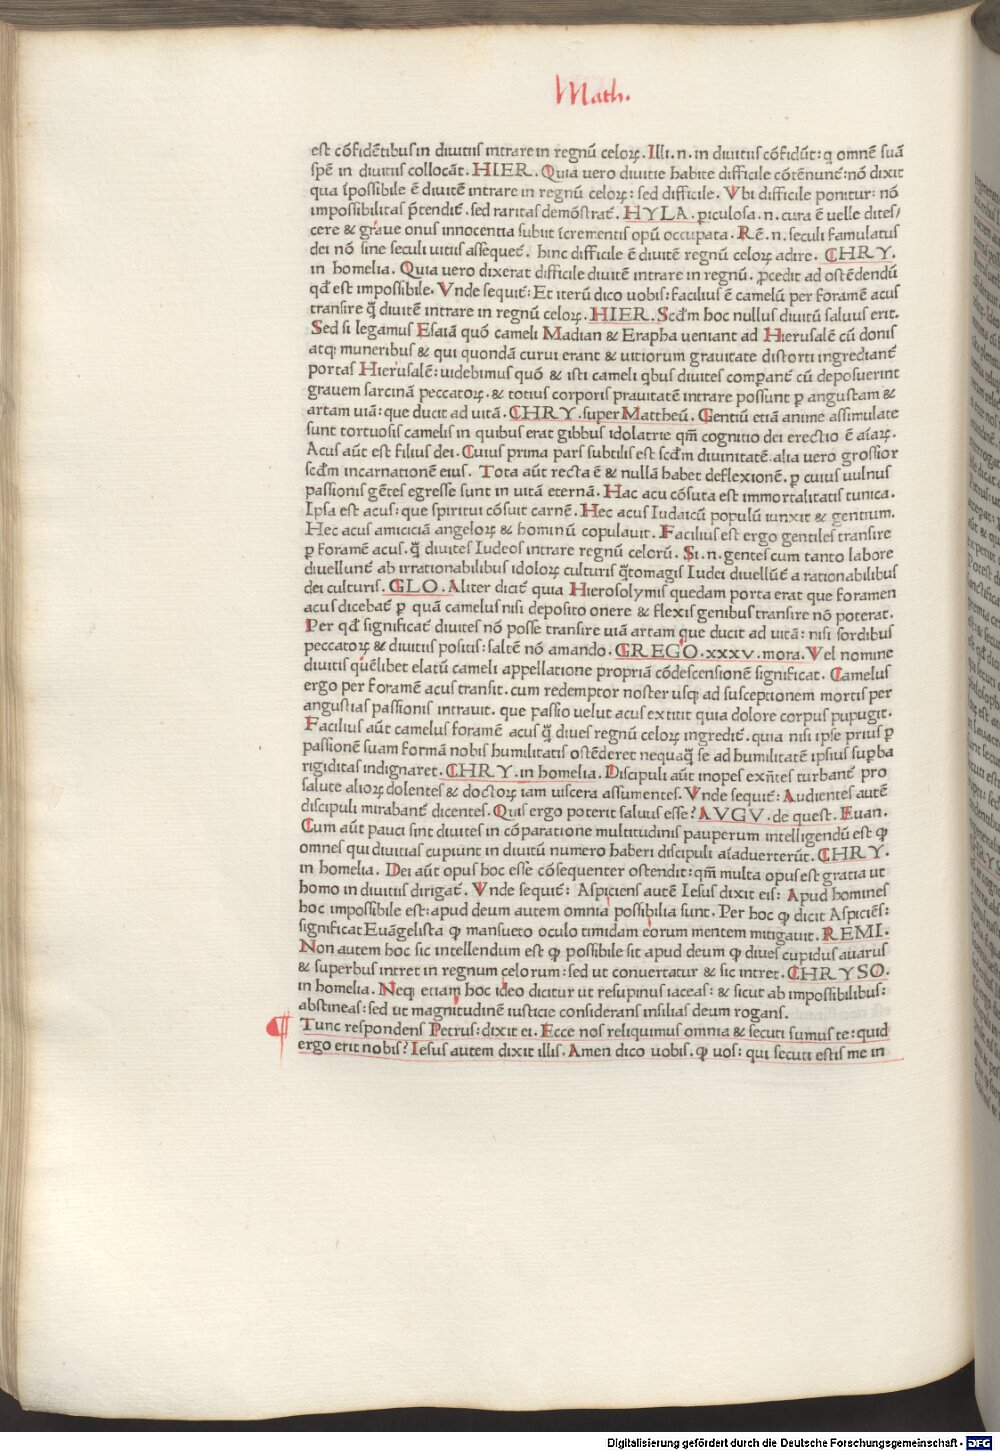 Math.
est cōfidētibus in diuitiis intrare in regnū celoꝝ. Illi.n. in diuitiis cōfidūt: q omnē suā
spē in diuitiis collocāt. HIER. Quia uero diuitie habite difficile cōtēnunt᷑: nō dixit
qua ipossibile ē diuitē intrare in regnū celoꝝ: sed difficile. Vbi difficile ponitur: nō
impossibilitas p̄tendit᷑. sed raritas demōstrat᷑. HYLA. piculosa.n. cura ē uelle dites/
cere & graue onus innocentia subiit icrementis opū occupata. Rē.n. seculi famulatus
dei nō sine seculi uitiis assequet᷑. hinc difficile ē diuitē regnū celoꝝ adire. CHRY.
in homelia. Quia uero dixerat difficile diuitē intrare in regnū. ꝓcedit ad ostēdendū
qđ est impossibile. Vnde sequit᷑: Et iterū dico uobis: facilius ē camelū per foramē acus
transire q̄ diuitē intrare in regnū celoꝝ. HIER. Scd̄m hoc nullus diuitū saluus erit.
Sed si legamus Esaiā quō cameli Madian & Erapha ueniant ad Hierusalē cū donis
atq; muneribus & qui quondā curui erant & uitiorum grauitate distorti ingrediant᷑
portas Hierusalē: uidebimus quō & isti cameli qbus diuites compant᷑ cū deposuerint
grauem sarcinā peccatoꝝ. & totius corporis prauitatē intrare possunt ꝑ angustam &
artam uiā: que ducit ad uitā. CHRY. super Mattheū. Gentiū etiā anime assimulate
sunt tortuosis camelis in quibus erat gibbus idolatrie qm̄ cognitio dei erectio ē aīaꝝ.
Acus aūt est filius dei. Cuius prima pars subtilis est scd̄m diuinitatē. alia uero grossior
scd̄m incarnationē eius. Tota aūt recta ē & nullā habet deflexionē. ꝑ cuius uulnus
passionis gētes egresse sunt in uitā eternā. Hac acu cōsuta est immortalitatis tunica.
Ipsa est acus: que spiritui cōsuit carnē. Hec acus Iudaicū populū iunxit & gentium.
Hec acus amiciciā angeloꝝ & hominū copulauit. Facilius est ergo gentiles transire
ꝑ foramē acus. q̄ diuites Iudeos intrare regnū celorū. Si.n. gentes cum tanto labore
diuellunt᷑ ab irrationabilibus idoloꝝ culturis q̄tomagis Iudei diuellūt᷑ a rationabilibus
dei culturis. GLO. Aliter dicit᷑ quia Hierosolymis quedam porta erat que foramen
acus dicebat᷑ ꝑ quā camelus nisi deposito onere & flexis genibus transire nō poterat.
Per qđ significat᷑ diuites nō posse transire uiā artam que ducit ad uitā: nisi sordibus
peccatoꝝ & diuitiis positis: saltē nō amando. GREGO. xxxv. mora. Vel nomine
diuitis quēlibet elatū cameli appellatione propriā cōdescensionē significat. Camelus
ergo per foramē acus transit. cum redemptor noster usq; ad susceptionem mortis per
angustias passionis intrauit. que passio uelut acus extitit quia dolore corpus pupugit.
Facilius aūt camelus foramē acus q̄ diues regnū celoꝝ ingredit᷑. quia nisi ipse prius ꝑ
passionē suam formā nobis humilitatis ostēderet nequaq̄ se ad humilitatē ipsius supba
rigiditas indignaret. CHRY. in homelia. Discipuli aūt inopes exn̄tes turbant᷑ pro
salute alioꝝ dolentes & doctoꝝ iam uiscera assumentes. Vnde sequit᷑: Audientes autē
discipuli mirabant᷑ dicentes. Quis ergo poterit saluus esse? AVGV. de quest. Euan.
Cum aūt pauci sint diuites in cōparatione multitudinis pauperum intelligendū est ꝙ
omnes qui diuitias cupiunt in diuitū numero haberi discipuli aīaduerterūt. CHRY.
in homelia. Dei aūt opus hoc esse cōsequenter ostendit: qm̄ multa opus est gratia ut
homo in diuitiis dirigat᷑. Vnde sequit᷑: Aspiciens autē Iesus dixit eis: Apud homines
hoc impossibile est: apud deum autem omnia possibilia sunt. Per hoc ꝙ dicit Aspiciēs:
significat Euāgelista ꝙ mansueto oculo timidam eorum mentem mitigauit. REMI.
Non autem hoc sic intellendum est ꝙ possibile sit apud deum ꝙ diues cupidus auarus
& superbus intret in regnum celorum: sed ut conuertatur & sic intret. CHRYSO.
in homelia. Neq; etiam hoc ideo dicitur ut resupinus iaceas: & sicut ab impossibilibus:
abstineas: sed ut magnitudinē iusticie considerans insilias deum rogans.
Tunc respondens Petrus: dixit ei. Ecce nos reliquimus omnia & secuti sumus te: quid
ergo erit nobis? Iesus autem dixit illis. Amen dico uobis. ꝙ uos: qui secuti estis me in
Digitalisierung gefördert durch die Deutsche Forschungsgemeinschaft - DFG